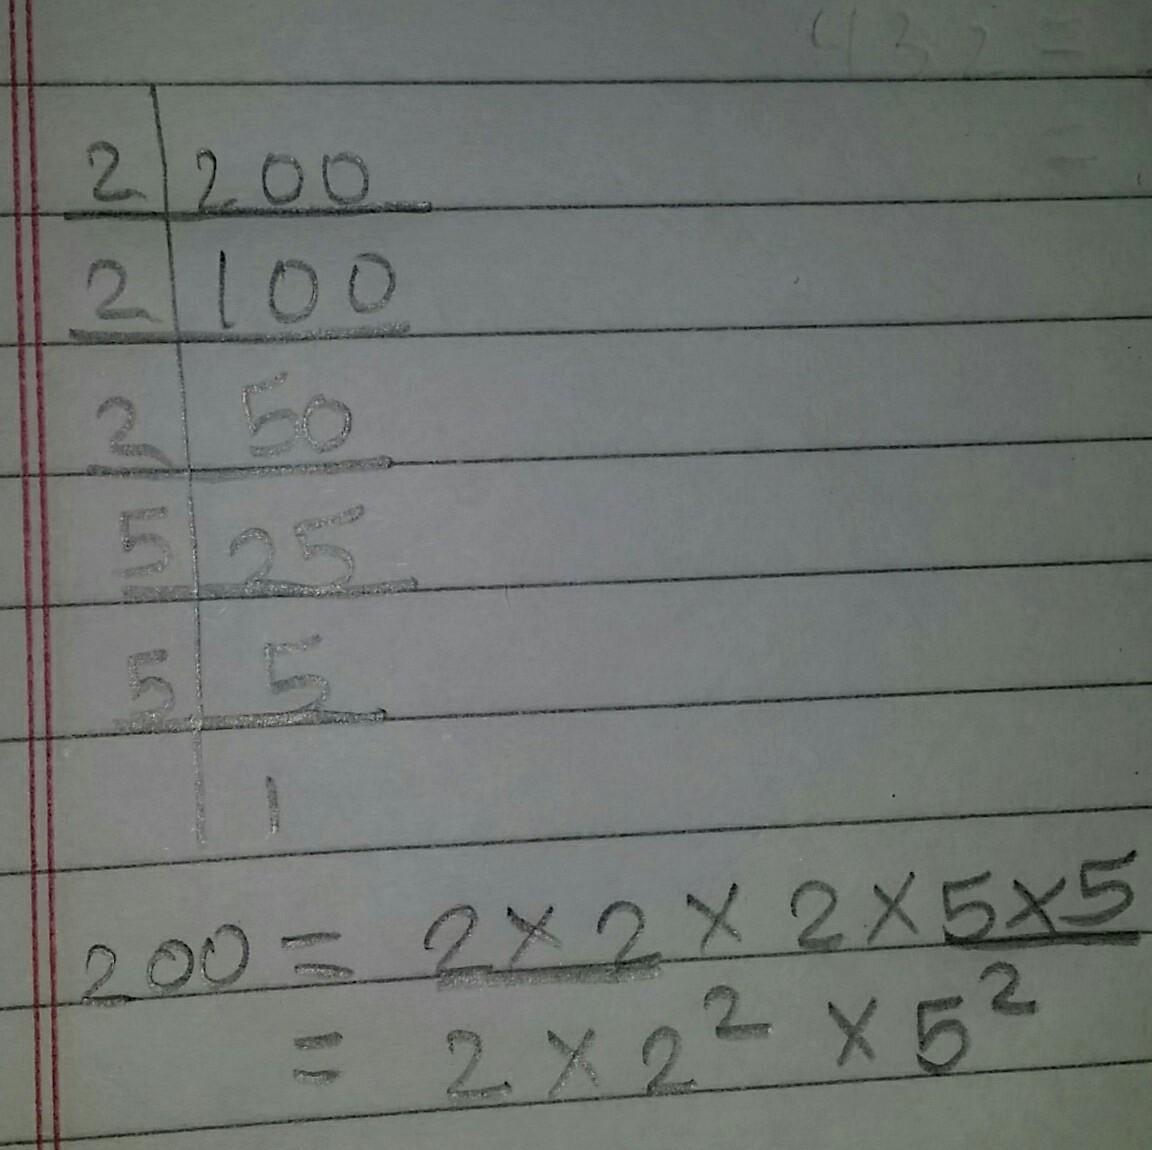 432 =
=
2 | 200
2 | 100
2 | 50
5 | 25
5 | 5
| 1
200 = 2 × 2 × 2 × 5 × 5
= 2 × 2² × 5²